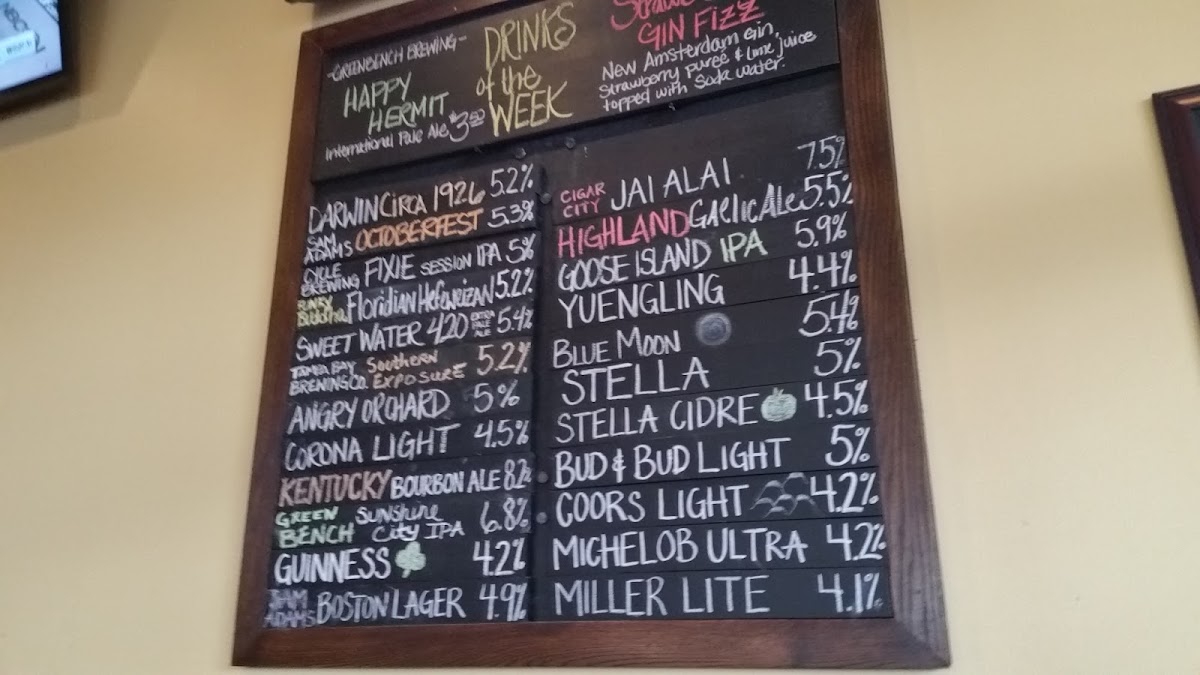 GREENBENCH BREWING-
HAPPY
HERMIT
International Pale Ale $3.50
DRINKS
of the
WEEK
GIN FIZZ
New Amsterdam Gin,
Strawberry puree & lime juice
topped with Soda water.
DARWIN CIRCA 1926 5.2%
SAM ADAMS OCTOBERFEST 5.3%
CYCLE BREWING FIXIE SESSION IPA 5%
FUNKY Buddha Floridian Hefeweizan 5.2%
SWEET WATER 420 EXTRA PALE ALE 5.4%
TAMPA BAY BREWING CO. Southern EXPOSURE 5.2%
ANGRY ORCHARD 5%
CORONA LIGHT 4.5%
KENTUCKY BOURBON ALE 8.2%
GREEN BENCH Sunshine City IPA 6.8%
GUINNESS 4.2%
SAM ADAMS BOSTON LAGER 4.9%
CIGAR CITY JAI ALAI 7.5%
HIGHLAND Gaelic Ale 5.5%
GOOSE ISLAND IPA 5.9%
YUENGLING 4.4%
BLUE MOON 5.4%
STELLA 5%
STELLA CIDRE 4.5%
BUD & BUD LIGHT 5%
COORS LIGHT 4.2%
MICHELOB ULTRA 4.2%
MILLER LITE 4.1%